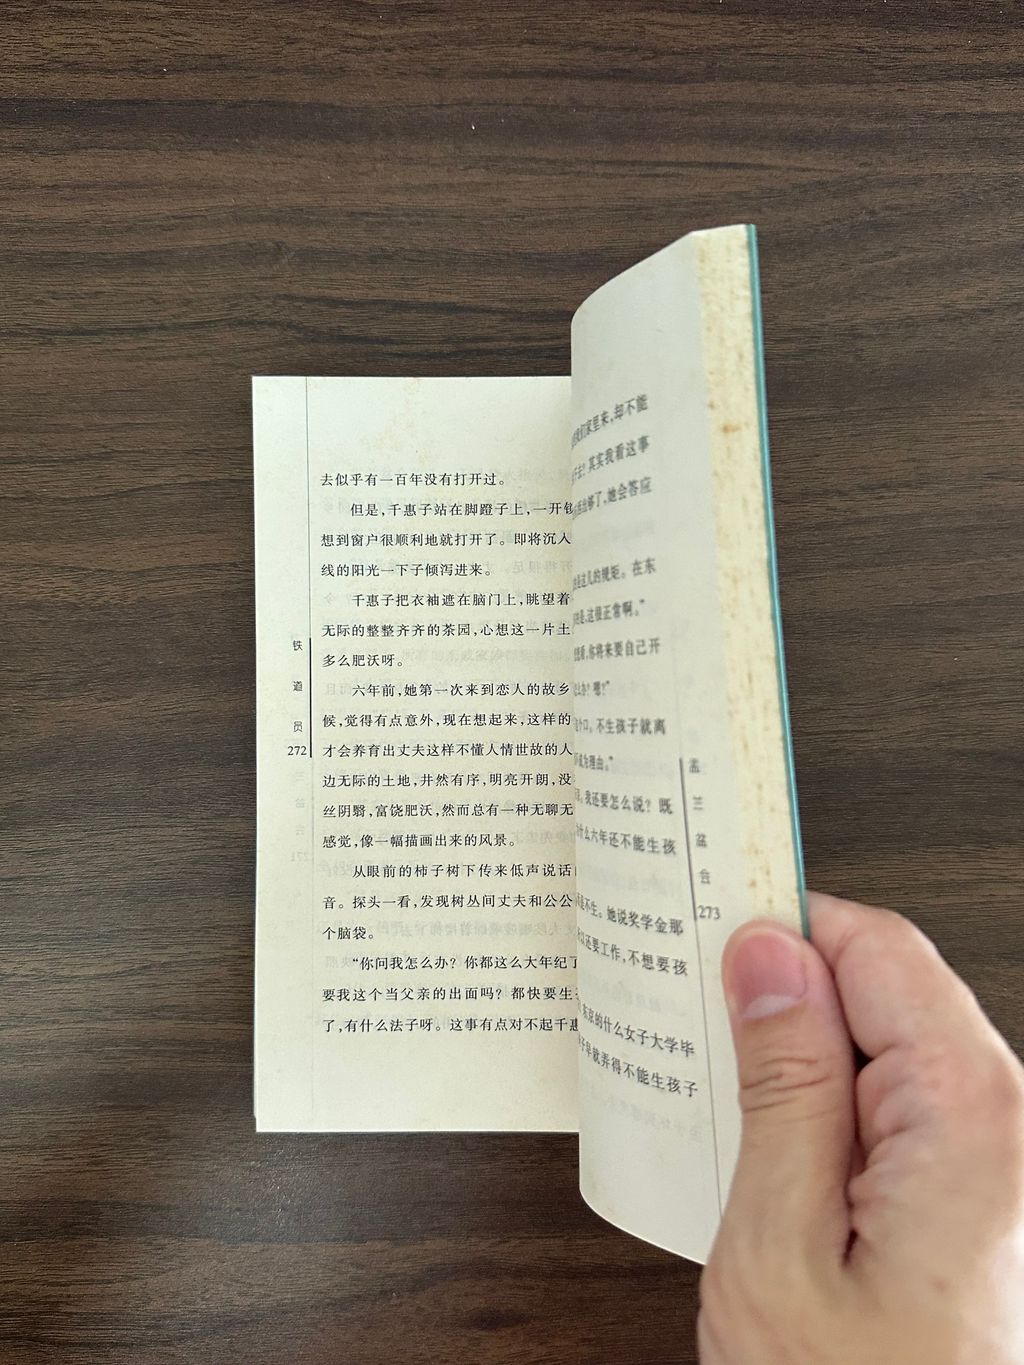 去似乎有一百年没有打开过。
但是,千惠子站在脚蹬子上,一开
想到窗户很顺利地就打开了。即将沉入
线的阳光一下子倾泻进来。
千惠子把衣袖遮在脑门上,眺望着
无际的整整齐齐的茶园,心想这一片土
多么肥沃呀。
六年前,她第一次来到恋人的故乡
候,觉得有点意外,现在想起来,这样的
才会养育出丈夫这样不懂人情世故的人
边无际的土地,井然有序,明亮开朗,没
丝阴翳,富饶肥沃,然而总有一种无聊无
感觉,像一幅描画出来的风景。
从眼前的柿子树下传来低声说话
音。探头一看,发现树丛间丈夫和公公
个脑袋。
“你问我怎么办?你都这么大年纪了
要我这个当父亲的出面吗?都快要生
了,有什么法子呀。这事有点对不起千惠
铁道员
272
我们家里来,却不能
去?其实我看这事
够了,她会答应
是这儿的规矩。在东
是,这很正常啊。”
看,你将来要自己开
么办?嗯?”
个口。不生孩子就离
成为理由。”
我还要怎么说?既
什么六年还不能生孩
是不生。她说奖学金那
以还要工作,不想要孩
东京的什么女子大学毕
子早就弄得不能生孩子
盂兰盆会
273